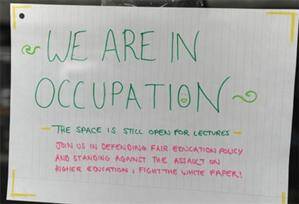 WE ARE IN
OCCUPATION
THE SPACE IS STILL OPEN FOR LECTURES
JOIN US IN DEFENDING FAIR EDUCATION POLICY
AND STANDING AGAINST THE ASSAULT ON
HIGHER EDUCATION; FIGHT THE WHITE PAPER!